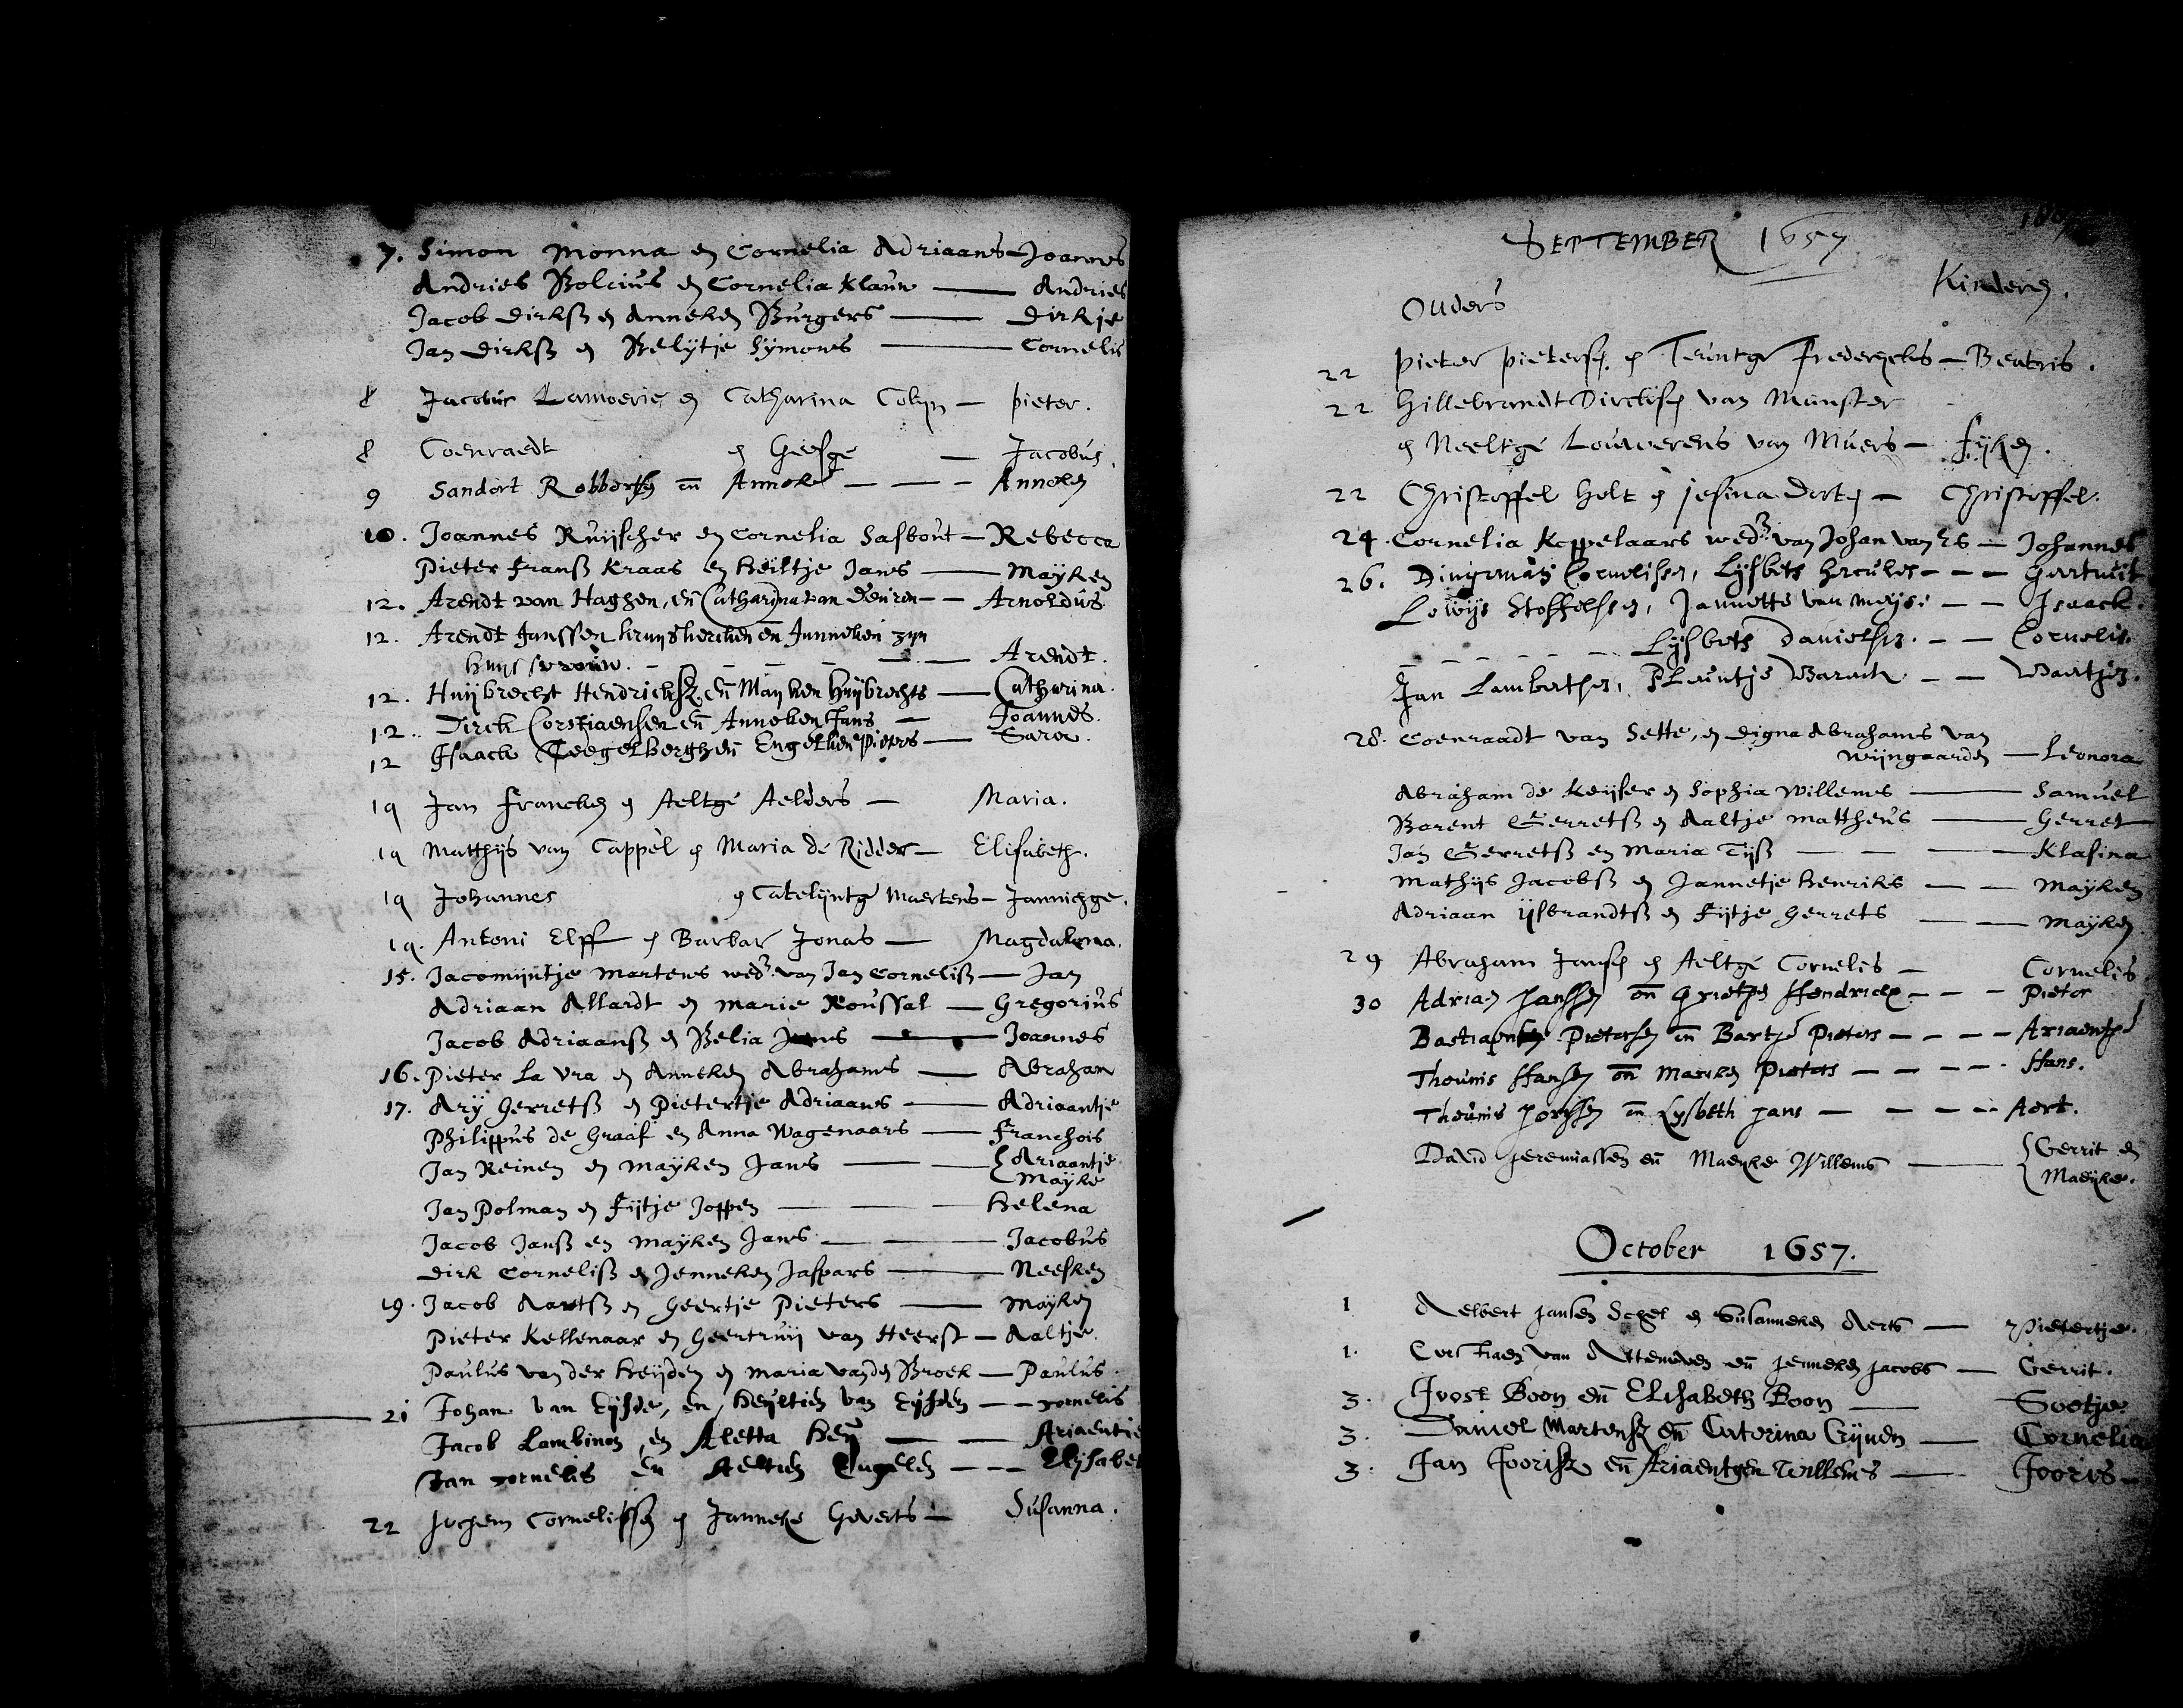 7. Simon Monna en Cornelia Adriaans — Joannes
Andries Bolcius en Cornelia Klaun — Andries
Jacob Dirksz en Anneken Burgers — Dirkje
Jan Dirksz en Belijtje Sijmons — Cornelis
8 Jacobus Lamoerie en Catharina Colyn — pieter.
8 Coenraedt en Geesge — Jacobus.
9 Sandert Robbertsen en Anneke — — — Anneken
10. Joannes Ruijscher en Cornelia Sasbout — Rebecca
Pieter Fransz Kraas en Heiltje Jans — Maijken
12. Arendt van Haghen, en Catharina van — — Arnoldus
12. Arendt Janssen en Janneken zyn
huijsvrouw. — — — Arendt.
12. Huijbrecht Hendricksz en Mayken Huijbrechts — Catharina.
12. Dirck Corstiaensen en Anneken Jans — Joannes.
12 Isaack Teegelbergh en Engelken Pieters — Sara.
19 Jan Francken en Aeltge Aelders — Maria.
19 Matthijs van Cappel en Maria de Ridder — Elisabeth.
19 Johannes en Catelijntge Maertens — Jannichge.
19. Antoni Elff en Barbar Jonas — Magdalena.
15. Jacomijntje Martens wedr. van Jan Cornelisz — Jan
Adriaan Allardt en Marie Roussal — Gregorius
Jacob Adriaansz en Belia Jans — Joannes
16. Pieter la Vra en Anneken Abrahams — Abraham
17. Arij Gerretsz en Pietertje Adriaans — Adriaantje
Philippus de Graaf en Anna Wagenaars — Franchois
Jan Reinen en Maijken Jans — { Ariaantje
Mayke
Jan Polman en Fijtje Joppen — Helena
Jacob Jansz en Maijken Jans — Jacobus
Dirk Cornelisz en Jenneken Jaspars — Neesken
19. Jacob Aartsz en Geertje Pieters — Maijken
Pieter Kellenaar en Geertruij van Heerst — Aaltje.
Paulus van der Heijden en Maria vanden Broek — Paulus.
21 Johan van Eijsde, en Heijltien van Eijsden — — Cornelis
Jacob Lambinon en Aletta — — Ariaentie
Jan Cornelis en Aeltien Engelen — — Elijsabet
22 Jochem Cornelissen en Janneke Geverts — Susanna.
SEPTEMBER 1657
Ouders Kinderen.
22 Pieter Pietersen. en Teuntge Fredericks — Beatris.
22 Hillebrandt Dircksen van Munster
en Neeltge Louwerens van Muers — Fijken.
22 Christoffel Holt en Jesina — Christoffel.
24. Cornelia Keppelaars wedr. van Johan van Es — Johannes
26. Dingeman Cornelissen, Lijsbeth Hercules — — — Geertruit
Lowijs Stoffelsen, Jannette van Meijs. — — Isaack.
— — — — — Lijsbeth Danielsen. — — Cornelis.
Jan Lambertsen, Pleuntje — — Maertjen.
28. Coenraadt van Sette, en Digna Abrahams van
Wijngaarden — Leonora
Abraham de Keijser en Sophia Willems — Samuel
Barent Gerretsz en Aaltje Mattheus — Gerret
Jan Gerretsz en Maria Tijsz — — — Klasina
Mathijs Jacobsz en Jannetje Henriks — — Maijken
Adriaan IJsbrandtsz en Fijtje Gerrets — — Maijken
29 Abraham Jansen en Aeltge Cornelis — Cornelis
30 Adriaen Janssen en Grietgen Hendrickx — — Pieter
Bastiaen Pietersen en Bartje Pieters — — — — Ariaentje
Theunis Hansen en Mariken Pieters — — — — Hans.
Theunis Jorissen en Lijsbeth Jans — — — — Aert.
David Jeremiassen en Maeyke Willems — { Gerrit en
Maeyke.
October 1657.
1 Aelbert Jansen Schel en Susanneken Aerts — Pietertje.
1. Corstiaen van Attenoven en Jenneken Jacobs — Gerrit.
3. Joost Boon en Elisabeth Boon — Sootje.
3. Daniel Martensz en Caterina Crijnen — Cornelia
3. Jan Joorisz en Ariaentgen Willems — Jooris